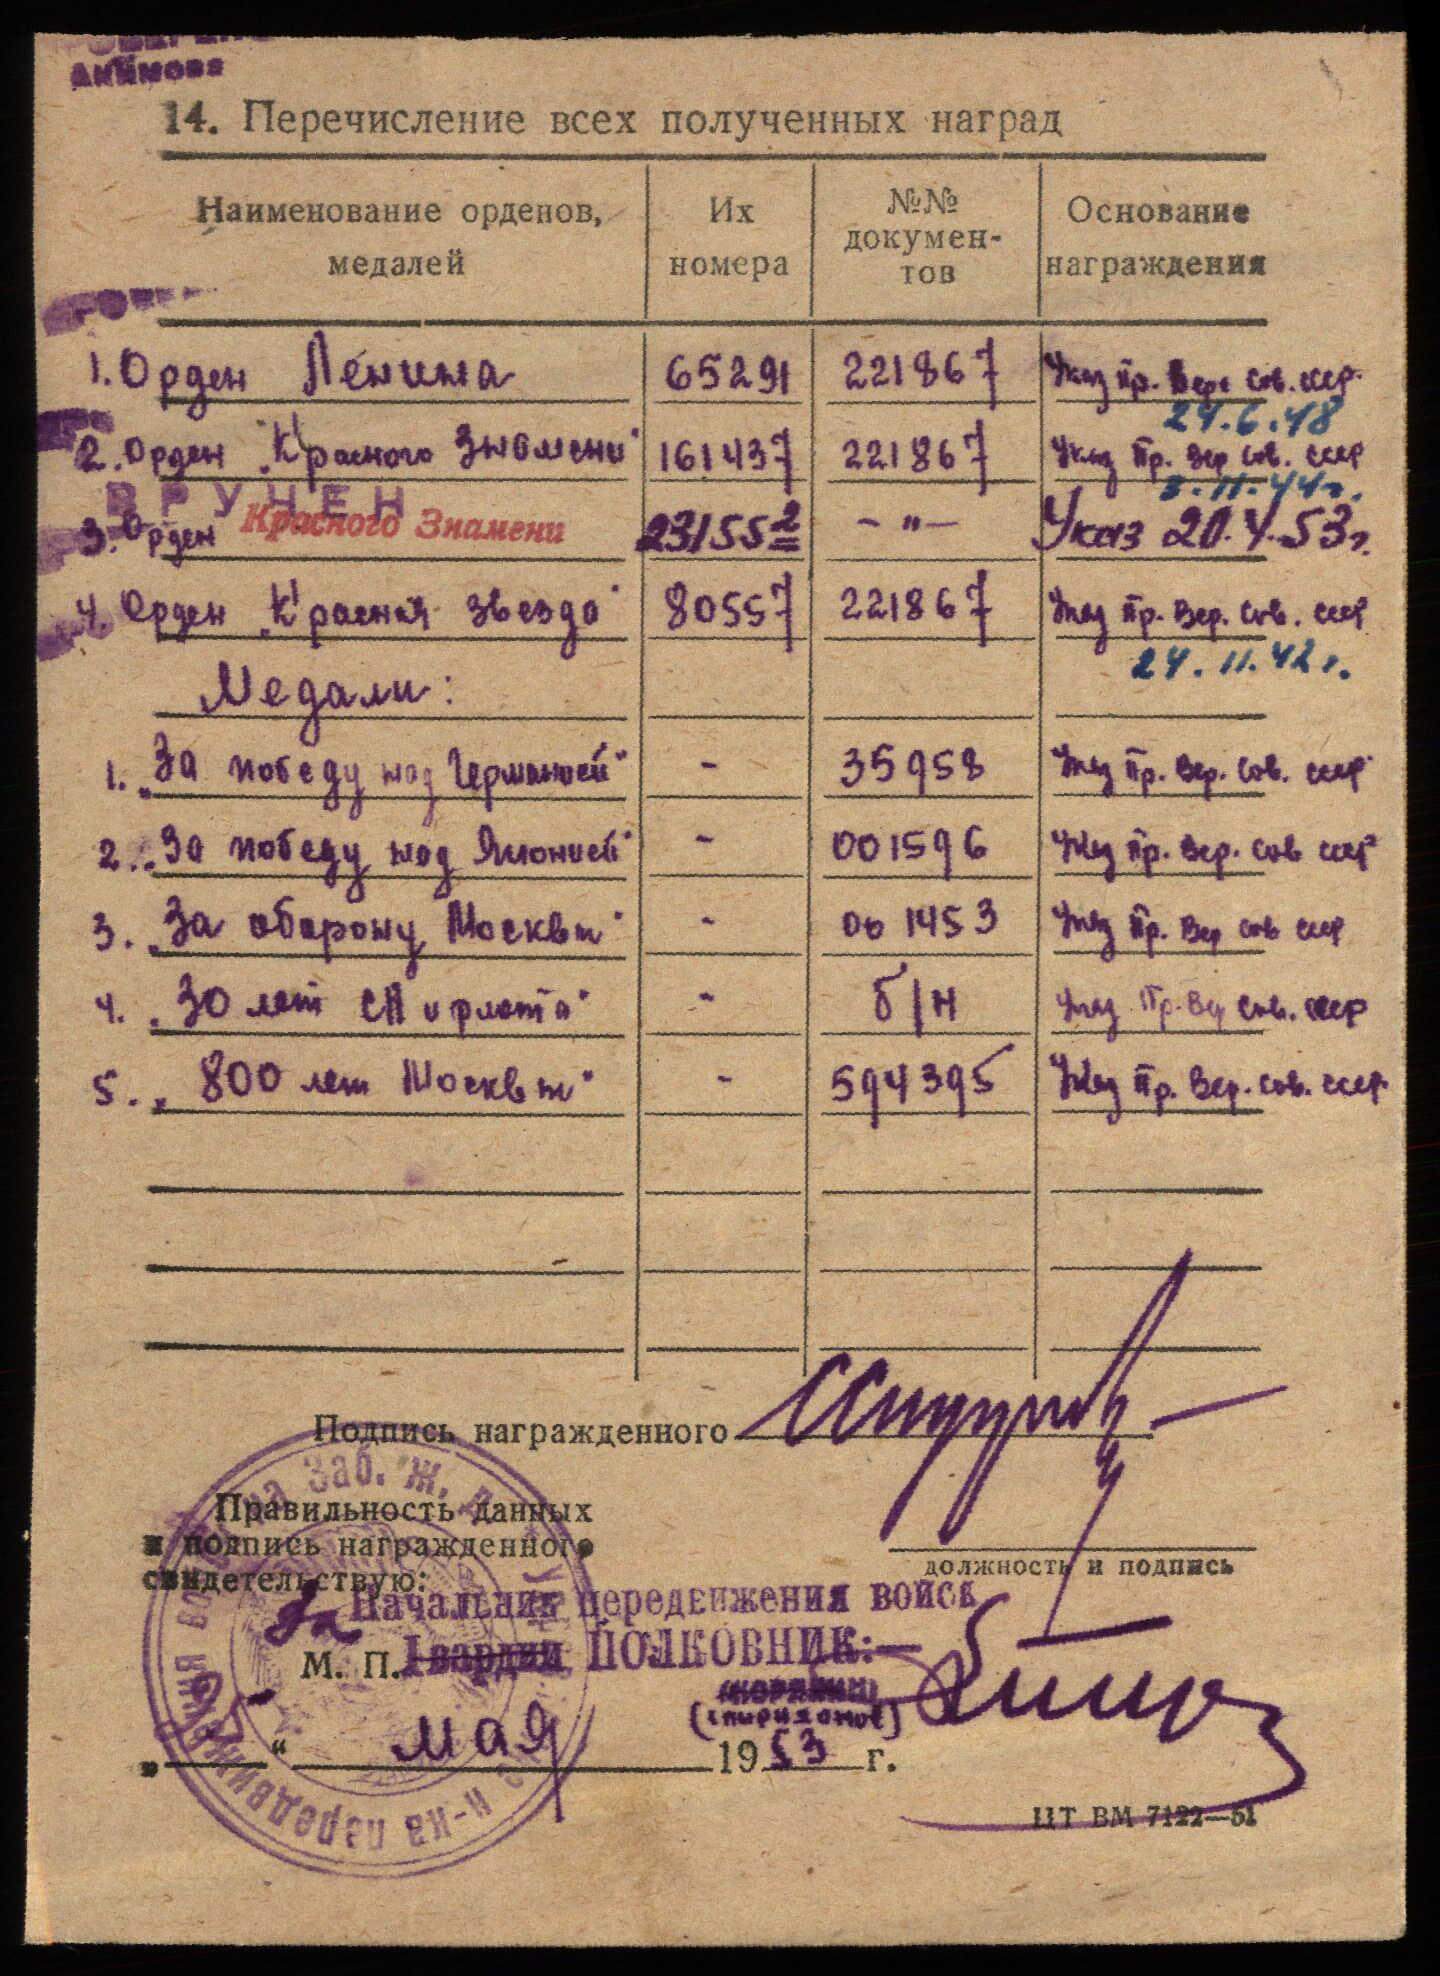 Акимова
14. Перечисление всех полученных наград
Наименование орденов, медалей | Их номера | №№ докумен-тов | Основание награждения
1. Орден Ленина 65291 221867 Указ Пр. Верх Сов. ссср.
24.6.48
2. Орден „Красного Знамени" 161437 221867 Указ Пр. Вер Сов. ссср
3.11.44г.
ВРУЧЕН
3. Орден Красного Знамени 231552 – " – Указ 20.4.53г.
4. Орден „Красная звезда" 80557 221867 Указ Пр. Вер. Сов. ссср
24.11.42г.
Медали:
1. „За победу над Германией" - 35958 Указ Пр. Вер. Сов. ссср
2. „За победу над Японией" - 001596 Указ Пр. Вер. Сов ссср
3. „За оборону Москвы" - 001453 Указ Пр. Вер Сов ссср
4. „30 лет СА и флота" - б/н Указ Пр. Вер Сов. ссср
5. „800 лет Москвы" - 594395 Указ Пр. Вер. Сов. ссср.
Подпись награжденного
Правильность данных
и подпись награжденного
свидетельствую:
должность и подпись
За Начальник передвижения войск
М. П. Гвардии ПОЛКОВНИК:
(Спиридонов)
„ 5 " мая 1953 г.
ЦТ ВМ 7122—51
н-ка передвижения войск на Заб. ж. д.